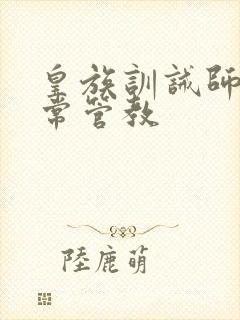 皇族訓誡師
常管教
陸鹿萌